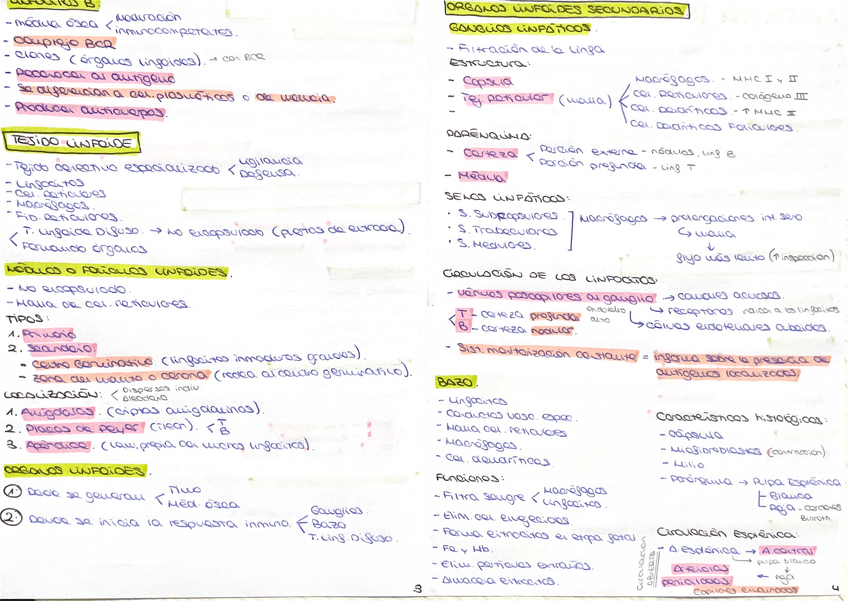 LINFOCITOS B:
- médula ósea < maduración
inmunocompetentes.
- Complejo BCR
- Clones (órganos linfoides). → con BCR
- Reconocer al antígeno
- Se diferencian a cel. plasmáticas o de memoria.
- Producen anticuerpos.
TEJIDO LINFOIDE
- Tejido conectivo especializado < vigilancia
Defensa.
- Linfocitos
- Cel. reticulares
- Macrófagos.
- Fib. Reticulares.
< T. Linfoide Difuso. → no encapsulado (puertas de entrada).
Formando órganos
NÓDULOS O FOLÍCULOS LINFOIDES.
- No encapsulado.
- Malla de cel. reticulares.
TIPOS:
1. Primario
2. Secundario
- Centro Germinativo. (linfocitos inmaduros grandes).
- Zona del manto o corona (rodea al centro germinativo).
LOCALIZACIÓN: < Dispersos indiv
1. Amígdalas. (criptas amigdalinas).
2. Placas de Peyer (íleon). < T
B
3. Apéndice. (lam. propia con muchos linfocitos).
ORGANOS LINFOIDES.
1. Donde se generan < Timo
Méd. Ósea
2. Donde se inicia la respuesta inmuno. < Ganglios
Bazo
T. Linf. Difuso.
3
ORGANOS LINFOIDES SECUNDARIOS
GANGLIOS LINFÁTICOS.
- Filtración de la linfa
ESTRUCTURA:
- Cápsula
- Tej reticular (malla) < Macrófagos. - MMC I y II
Cel. Reticulares - colágeno III
Cel. Dendríticas - ↑ MMC II
Cel. Dendríticas Foliculares.
PARÉNQUIMA:
- Corteza < Porción externa - nódulos, linf B
Porción profunda - linf T
- Médula
SENOS LINFÁTICOS:
· S. Subcapsulares.
· S. Trabeculares
· S. Medulares.
] Macrófagos → prolongaciones int. seno
↳ malla
↓
flujo más lento (↑ inspección)
CIRCULACIÓN DE LOS LINFOCITOS:
- Vénulas poscapilares al ganglio → canales acuosos.
→ receptores
↳ células endoteliales
endotelio
alto
< T - corteza profunda
B - corteza nodular.
- Sist. monitorización constante = informa sobre la presencia de
antígenos localizados.
BAZO.
- Linfocitos
- Conductos vasc. espec.
- Malla cel. reticulares
- Macrófagos.
- Cel. dendríticas.
FUNCIONES:
- Filtra sangre < Macrófagos
Linfocitos.
- Elim. cel. envejecidas
- Forma eritrocitos en etapa fetal
- Fe y Hb.
- Elim. partículas extrañas.
- Almacena eritrocitos.
Características histológicas:
- Cápsula
- Miofibroblastos (contracción)
- Hilio
- Parénquima → Pulpa Esplénica
Blanca
Roja - cordones
Billroth
Circulación Esplénica:
CIRCULACIÓN
ABIERTA
- A esplénica → A. central
→ pulpa blanca
Arteriolas
peniciladas
← roja
capilares envainados
4